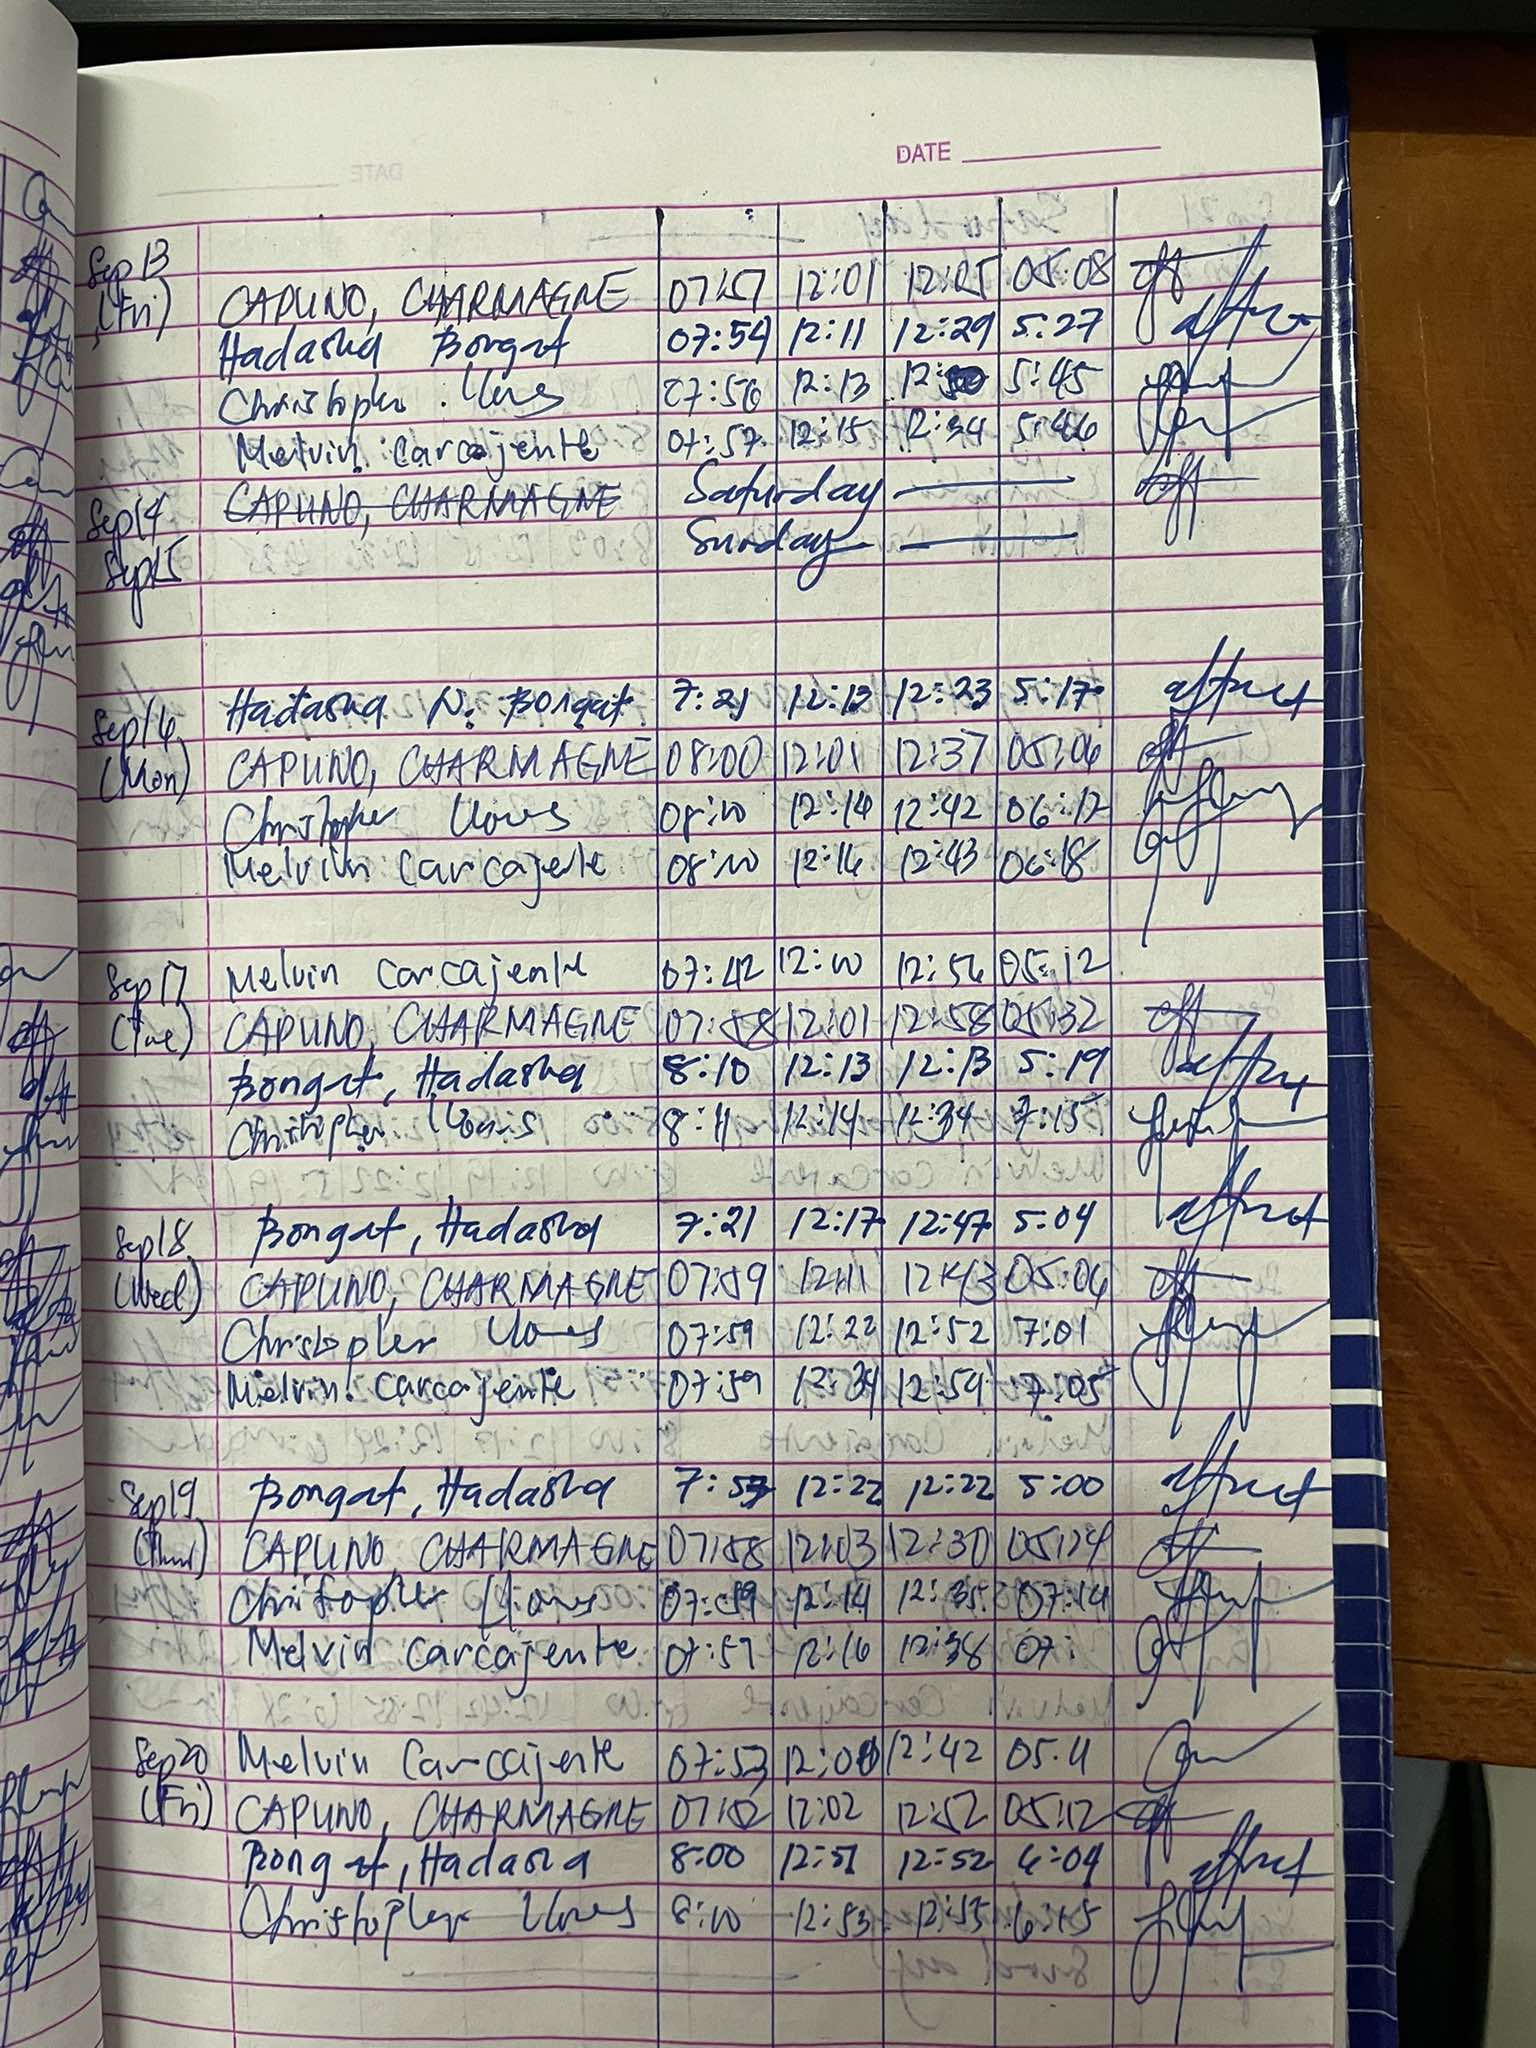 DATE
Sep 13
(Fri) CAPUNO, CHARMAGNE 07:57 12:01 12:25 05:08
Hadasha Bongat 07:54 12:11 12:29 5:27
Christopher 07:56 12:13 5:45
Melvin Carcajente 07:57 12:15 12:34 5:46
Sep 14 CAPUNO, CHARMAGNE Saturday
Sep 15 Sunday
Sep 16 Hadasha N. Bongat 7:21 12:13 12:23 5:17
(Mon) CAPUNO, CHARMAGNE 08:00 12:01 12:37 05:06
Christopher 08:10 12:14 12:42 06:17
Melvin Carcajente 08:10 12:16 12:43 06:18
Sep 17 Melvin Carcajente 07:42 12:10 12:56 05:12
(Tue) CAPUNO, CHARMAGNE 07:58 12:01 12:58 05:32
Bongat, Hadasha 8:10 12:13 12:13 5:19
Christopher 8:11 12:14 12:34 7:15
Sep 18 Bongat, Hadasha 7:21 12:17 12:47 5:04
(Wed) CAPUNO, CHARMAGNE 07:59 12:11 12:43 05:06
Christopher 07:59 12:22 12:52 7:01
Melvin Carcajente 07:59 12:34 12:54 7:05
Sep 19 Bongat, Hadasha 7:53 12:22 12:22 5:00
(Thur) CAPUNO, CHARMAGNE 07:58 12:03 12:30 05:24
Christopher 07:59 12:14 12:35 07:14
Melvin Carcajente 07:57 12:16 12:38 07:
Sep 20 Melvin Carcajente 07:53 12:00 12:42 05:11
(Fri) CAPUNO, CHARMAGNE 07:52 12:02 12:52 05:12
Bongat, Hadasha 8:00 12:51 12:52 6:04
Christopher 8:10 12:53 12:55 6:15